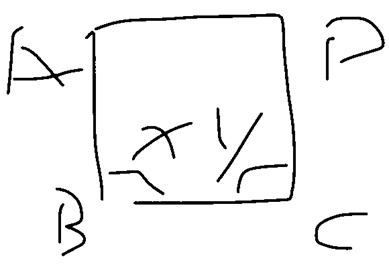 A P
x y
B C